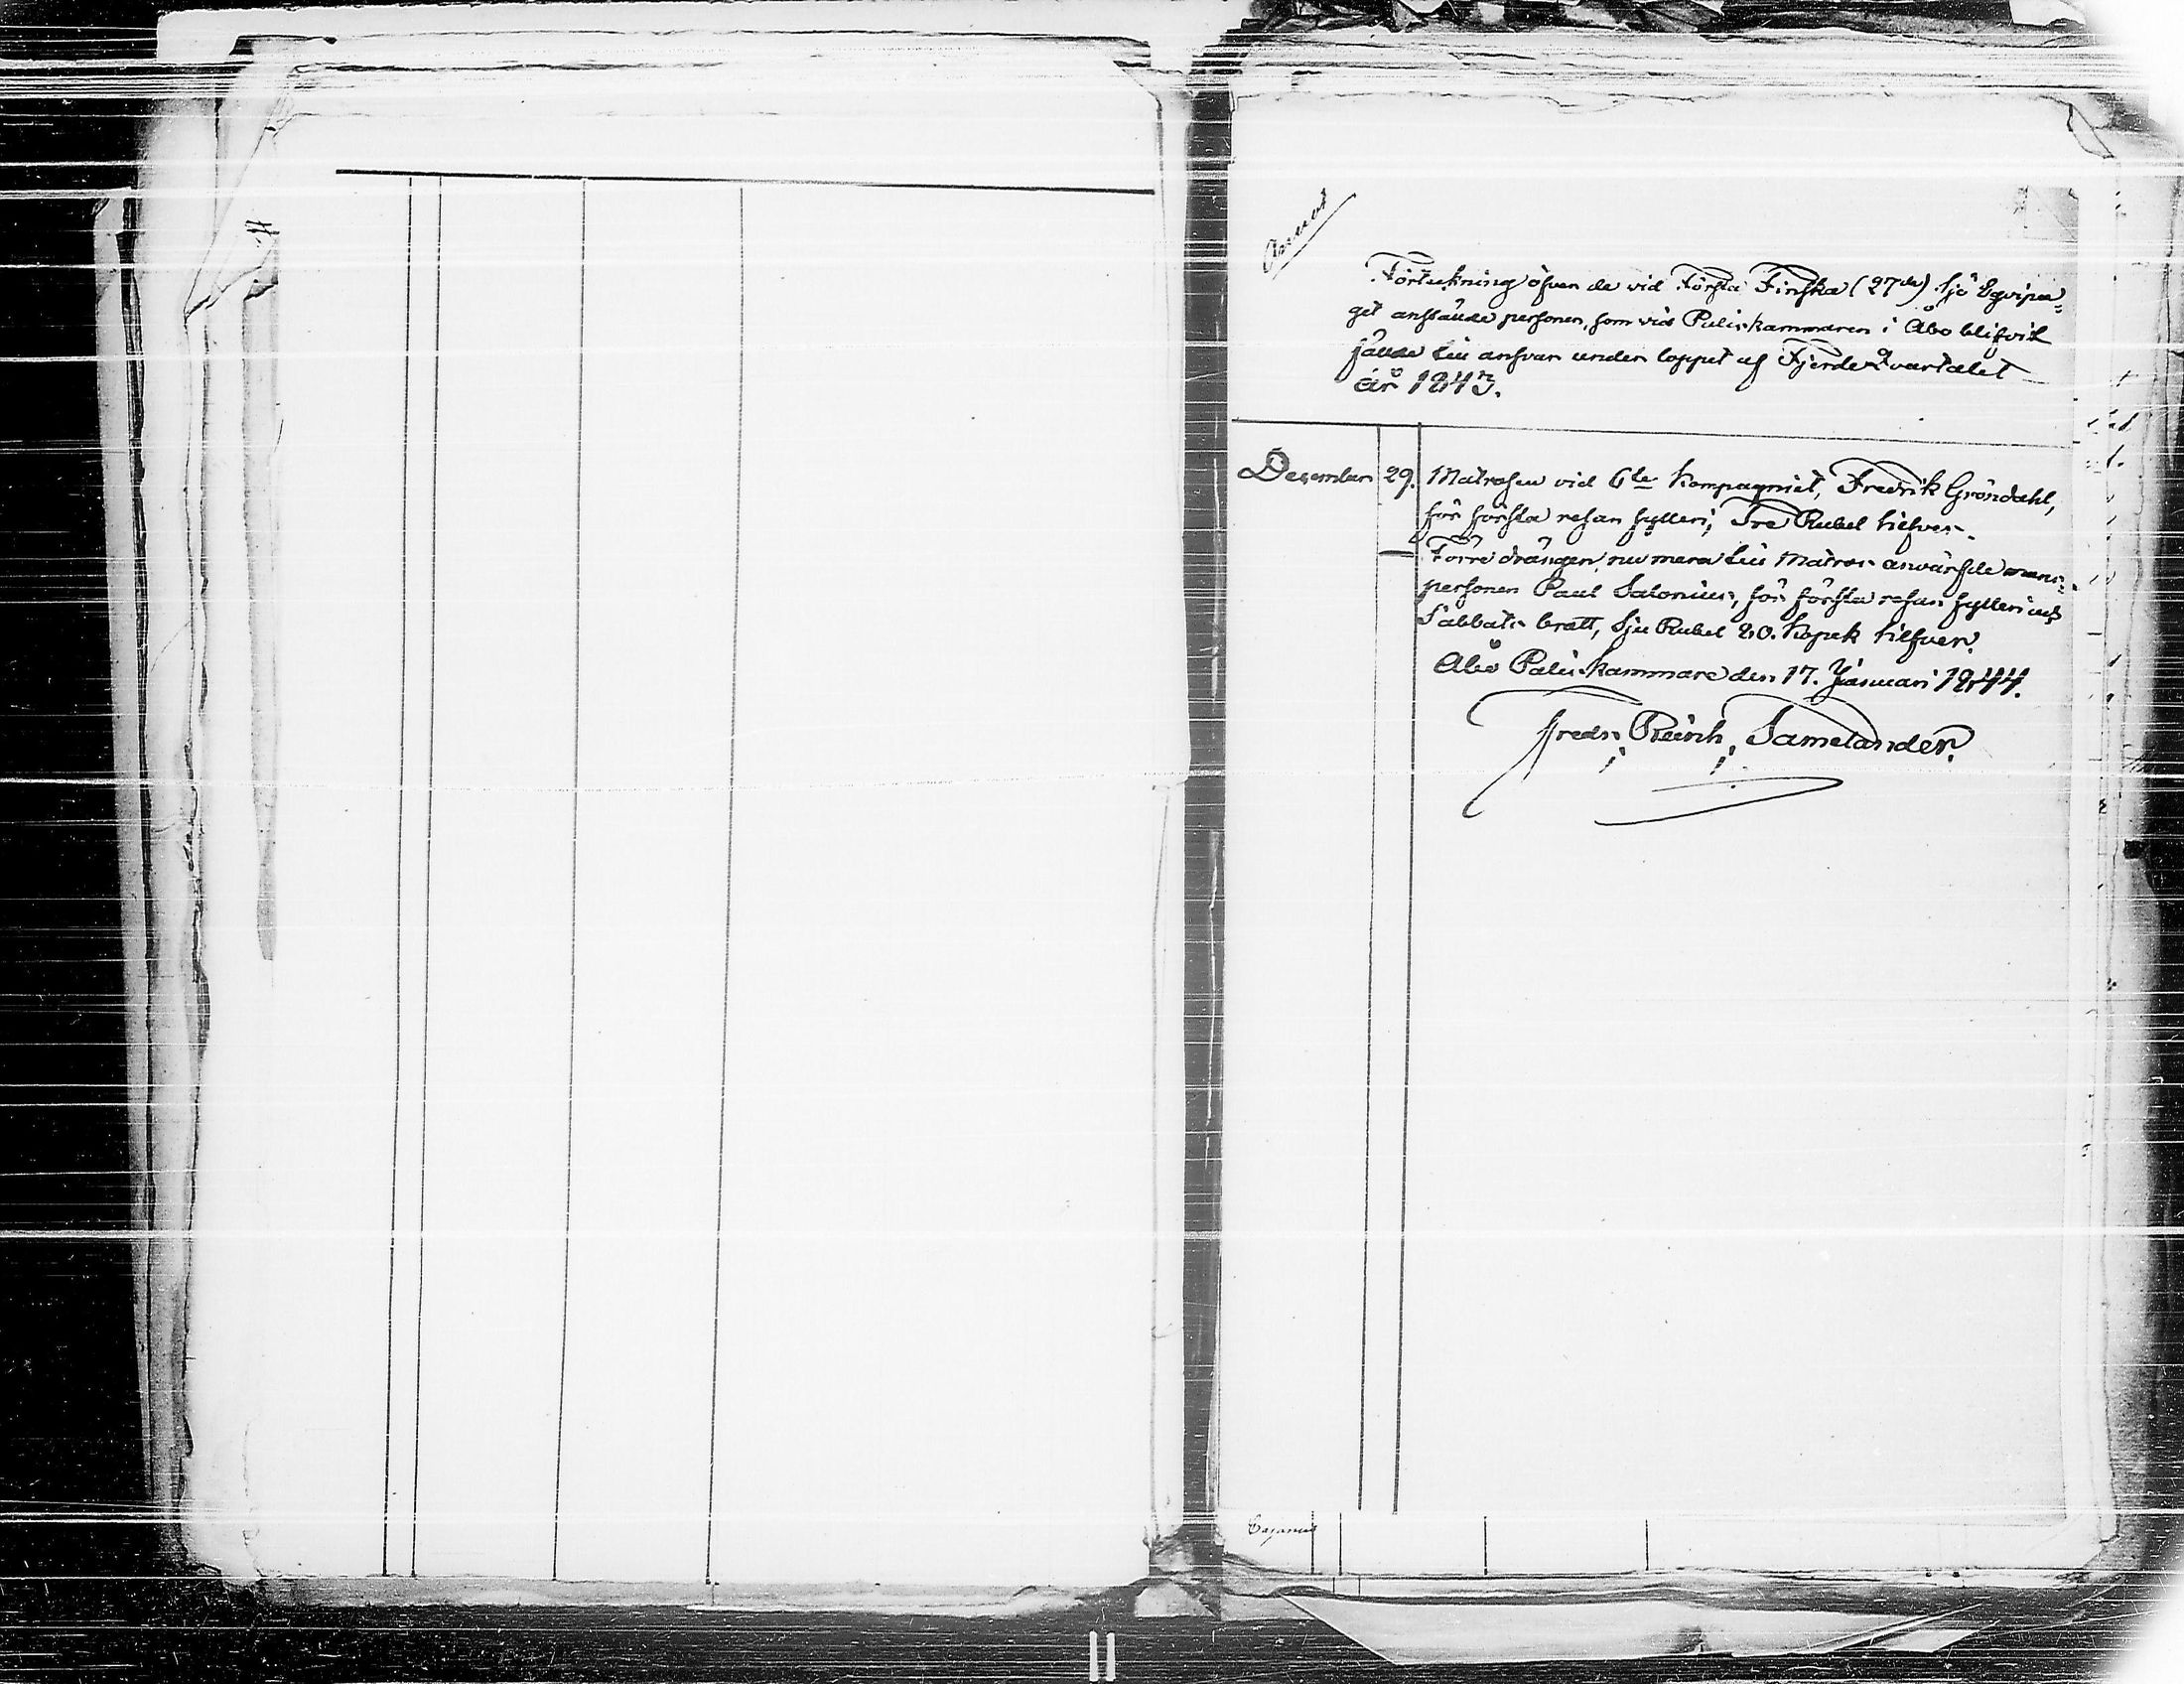 Annot
Förtekning öfver de vid Första Finska (27de) Sjö Eqvipa=
get anstälde personer, som vid Poliskammaren i Åbo blifvit
fälde till ansvar under loppet af Fjerde Qvartalet
år 1843.
December 29. Matrosen vid 6te Kompagniet, Fredrik Gröndahl,
för första resan fylleri, Tre Rubel silfver.
— Förre drängen, nu mera till Matros anvärfde mans=
personen Paul Salonius, för första resan fylleri och
Sabbats brott, Sju Rubel 20. Kopek silfver.
Åbo Poliskammare den 17. Januari 1844.
Fredr. Samelander.
Cajanus